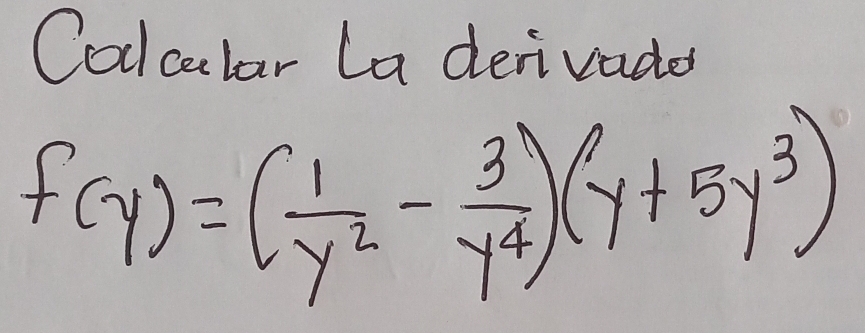 Calcular la derivada
f(y) = (1/y² - 3/y⁴)(y + 5y³)